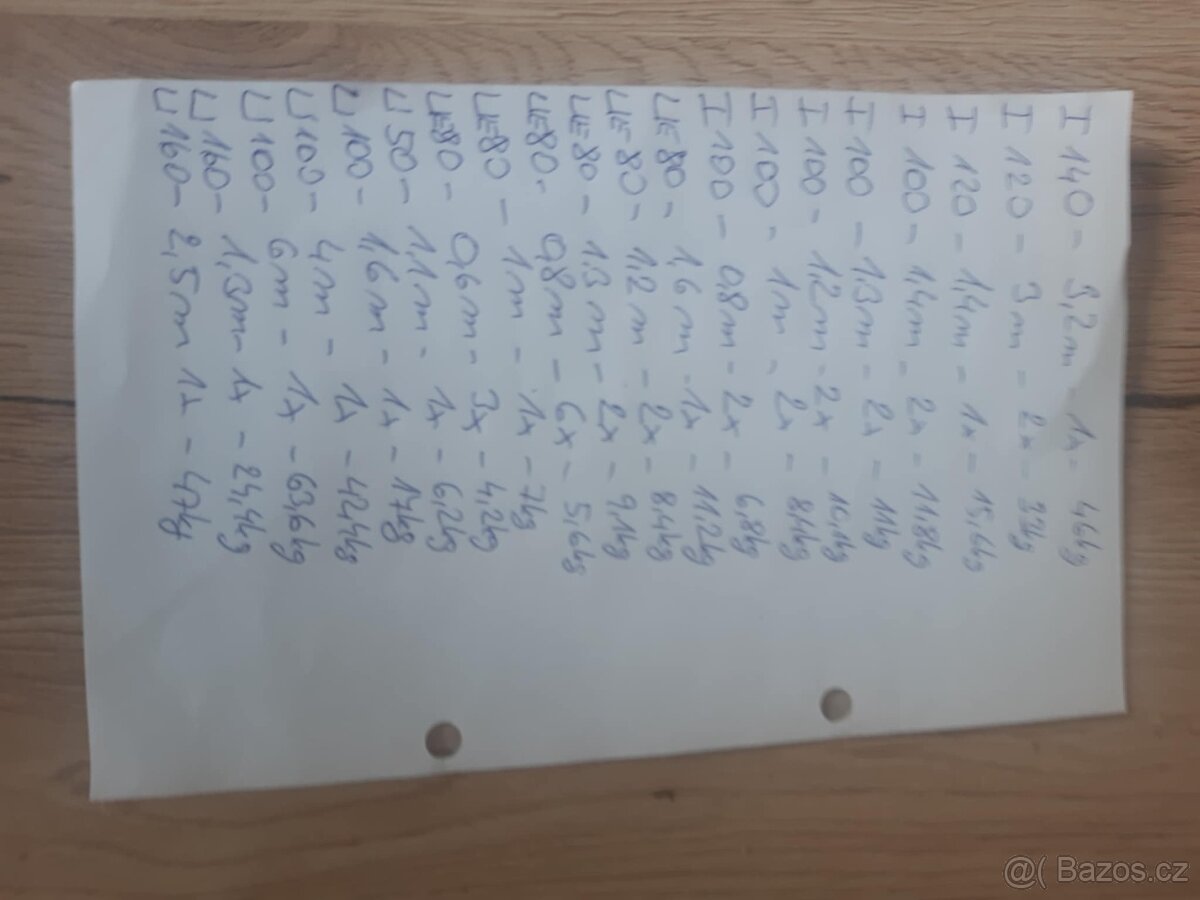 I 140 - 3,2m 1x - 46kg
I 120 - 3m - 2x - 33kg
I 120 - 1,4m - 1x - 15,6kg
I 100 - 1,4m - 2x - 11,8kg
I 100 - 1,3m - 2x - 11kg
I 100 - 1,2m - 2x - 10,1kg
I 100 - 1m - 2x - 8,4kg
I 100 - 0,8m - 2x - 6,8kg
UE 80 - 1,6m - 1x - 11,2kg
UE 80 - 1,2m - 2x - 8,4kg
UE 80 - 1,3m - 2x - 9,1kg
UE 80 - 0,8m - 6x - 5,6kg
UE 80 - 1m - 1x - 7kg
UE 80 - 0,6m - 3x - 4,2kg
U 50 - 1,1m - 1x - 6,2kg
U 100 - 1,6m - 1x - 17kg
U 100 - 4m - 1x - 42,4kg
U 100 - 6m - 1x - 63,6kg
U 160 - 1,3m - 1x - 24,4kg
U 160 - 2,5m 1x - 47kg
@( Bazos.cz